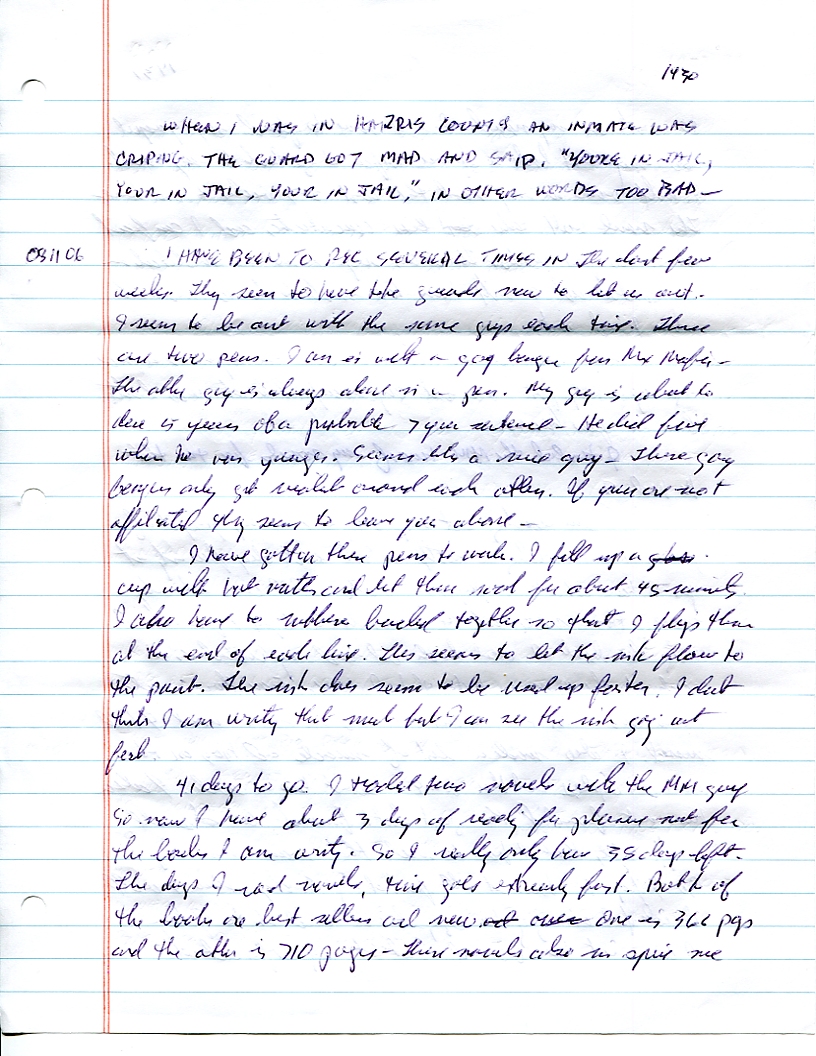 1430
WHEN I WAS IN HARRIS COUNTY AN INMATE WAS
GRIPING. THE GUARD GOT MAD AND SAID, "YOURE IN JAIL,
YOUR IN JAIL, YOUR IN JAIL," IN OTHER WORDS TOO BAD —
081106 I HAVE BEEN TO REC SEVERAL TIMES IN The last few
weeks. They seem to have the guards now to let us out.
I seem to be out with the same guys each time. There
are two pens. I am in with a gang banger from Mx Mafia –
The other guy is always alone in a pen. My guy is about to
do 15 years of a probable year sentence – He did five
when he was younger. Seems like a nice guy – These gang
bangers only get violent around each other. If you are not
affiliated they seem to leave you alone –
I have gotten these pens to work. I fill up a
cup with hot water and let them soak for about 45 minutes.
I also have to rubber banded together so that I flip them
at the end of each line. This seems to let the ink flow to
the point. The ink does seem to be used up faster. I don't
think I am writing that much but I can see the ink going out
fast.
41 days to go. I traded two novels with the MM guy
So now I have about 3 days of reading for pleasure not for
the books I am writing. So I really only have 38 days left.
The days I read novels, time goes extremely fast. Both of
the books are best sellers and new One is 366 pgs
and the other is 710 pages – These novels also inspire me